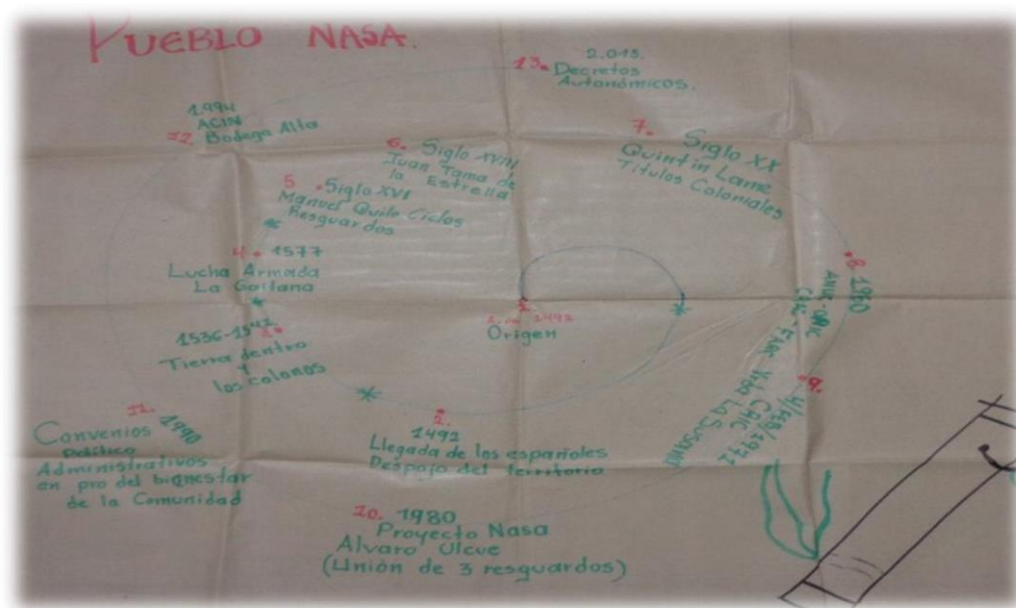 PUEBLO NASA.
1.
1492
Origen
2.
1492
Llegada de los españoles
Despojo del territorio
3.
1536-1542
Tierra dentro
y
los colonos
4. 1577
Lucha Armada
La Gaitana
5. Siglo XVI
Manuel Quilo Ciclos
Resguardos
6. Siglo XVIII
Juan Tama de
la Estrella
7. Siglo XX
Quintin Lame
Titulos Coloniales
8. 1960
ANUC-CRIC
CRIC - FARC
9. 24/FEB/1971
CRIC
La Susana
10. 1980
Proyecto Nasa
Alvaro Ulcue
(Unión de 3 resguardos)
11. 1990
Convenios
Politico
Administrativos
en pro del bienestar
de la Comunidad
1994
ACIN
12. Bodega Alta
2.015.
13. Decretos
Autonómicos.